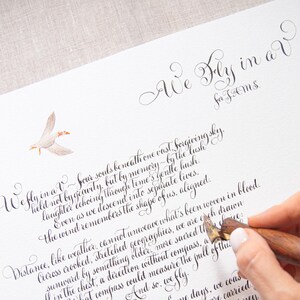 We Fly in a V
for F.O.M.S.
We fly in a V - four souls beneath one vast forgiving sky,
held not by gravity, but by memory - by the lush
laughter echoing through time's gentle hush.
Even as we descend into separate lives,
the wind remembers the shape of us, aligned.
Distance, like weather, cannot unweave what's been woven in blood.
Across crooked, stretched geographies, we are still drawn
summoned by something older, more sacred than
in the chest, a direction without compass
what compass could measure the pull of
And so, we fly
days, we coast